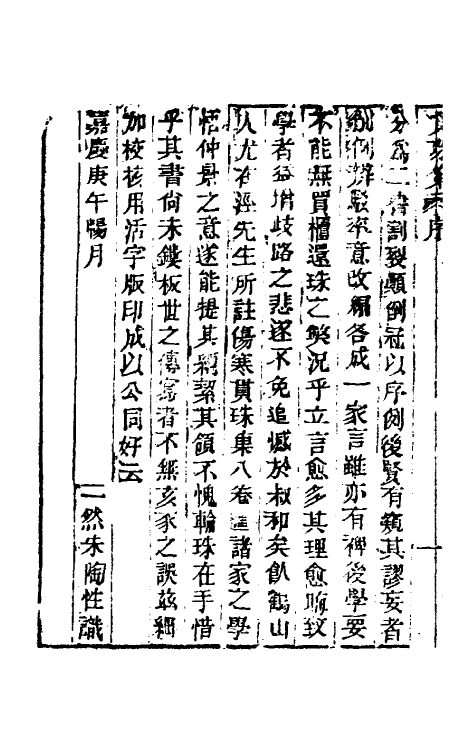 分為二書割裂顛倒冠以序例後賢有窺其謬妄者
創例辨駁率意改編各成一家言雖亦有裨後學要
不能無買櫃還珠之獘況乎立言愈多其理愈晦致
學者益增歧路之悲遂不免追憾於叔和矣飲鶴山
人尤在涇先生所註傷寒貫珠集八卷諸家之學
悟仲景之意遂能提其綱挈其領不愧輪珠在手惜
乎其書尚未鏤板世之傳寫者不無亥豕之誤茲細
加校核用活字版印成以公同好云
嘉慶庚午陽月
一然朱陶性識